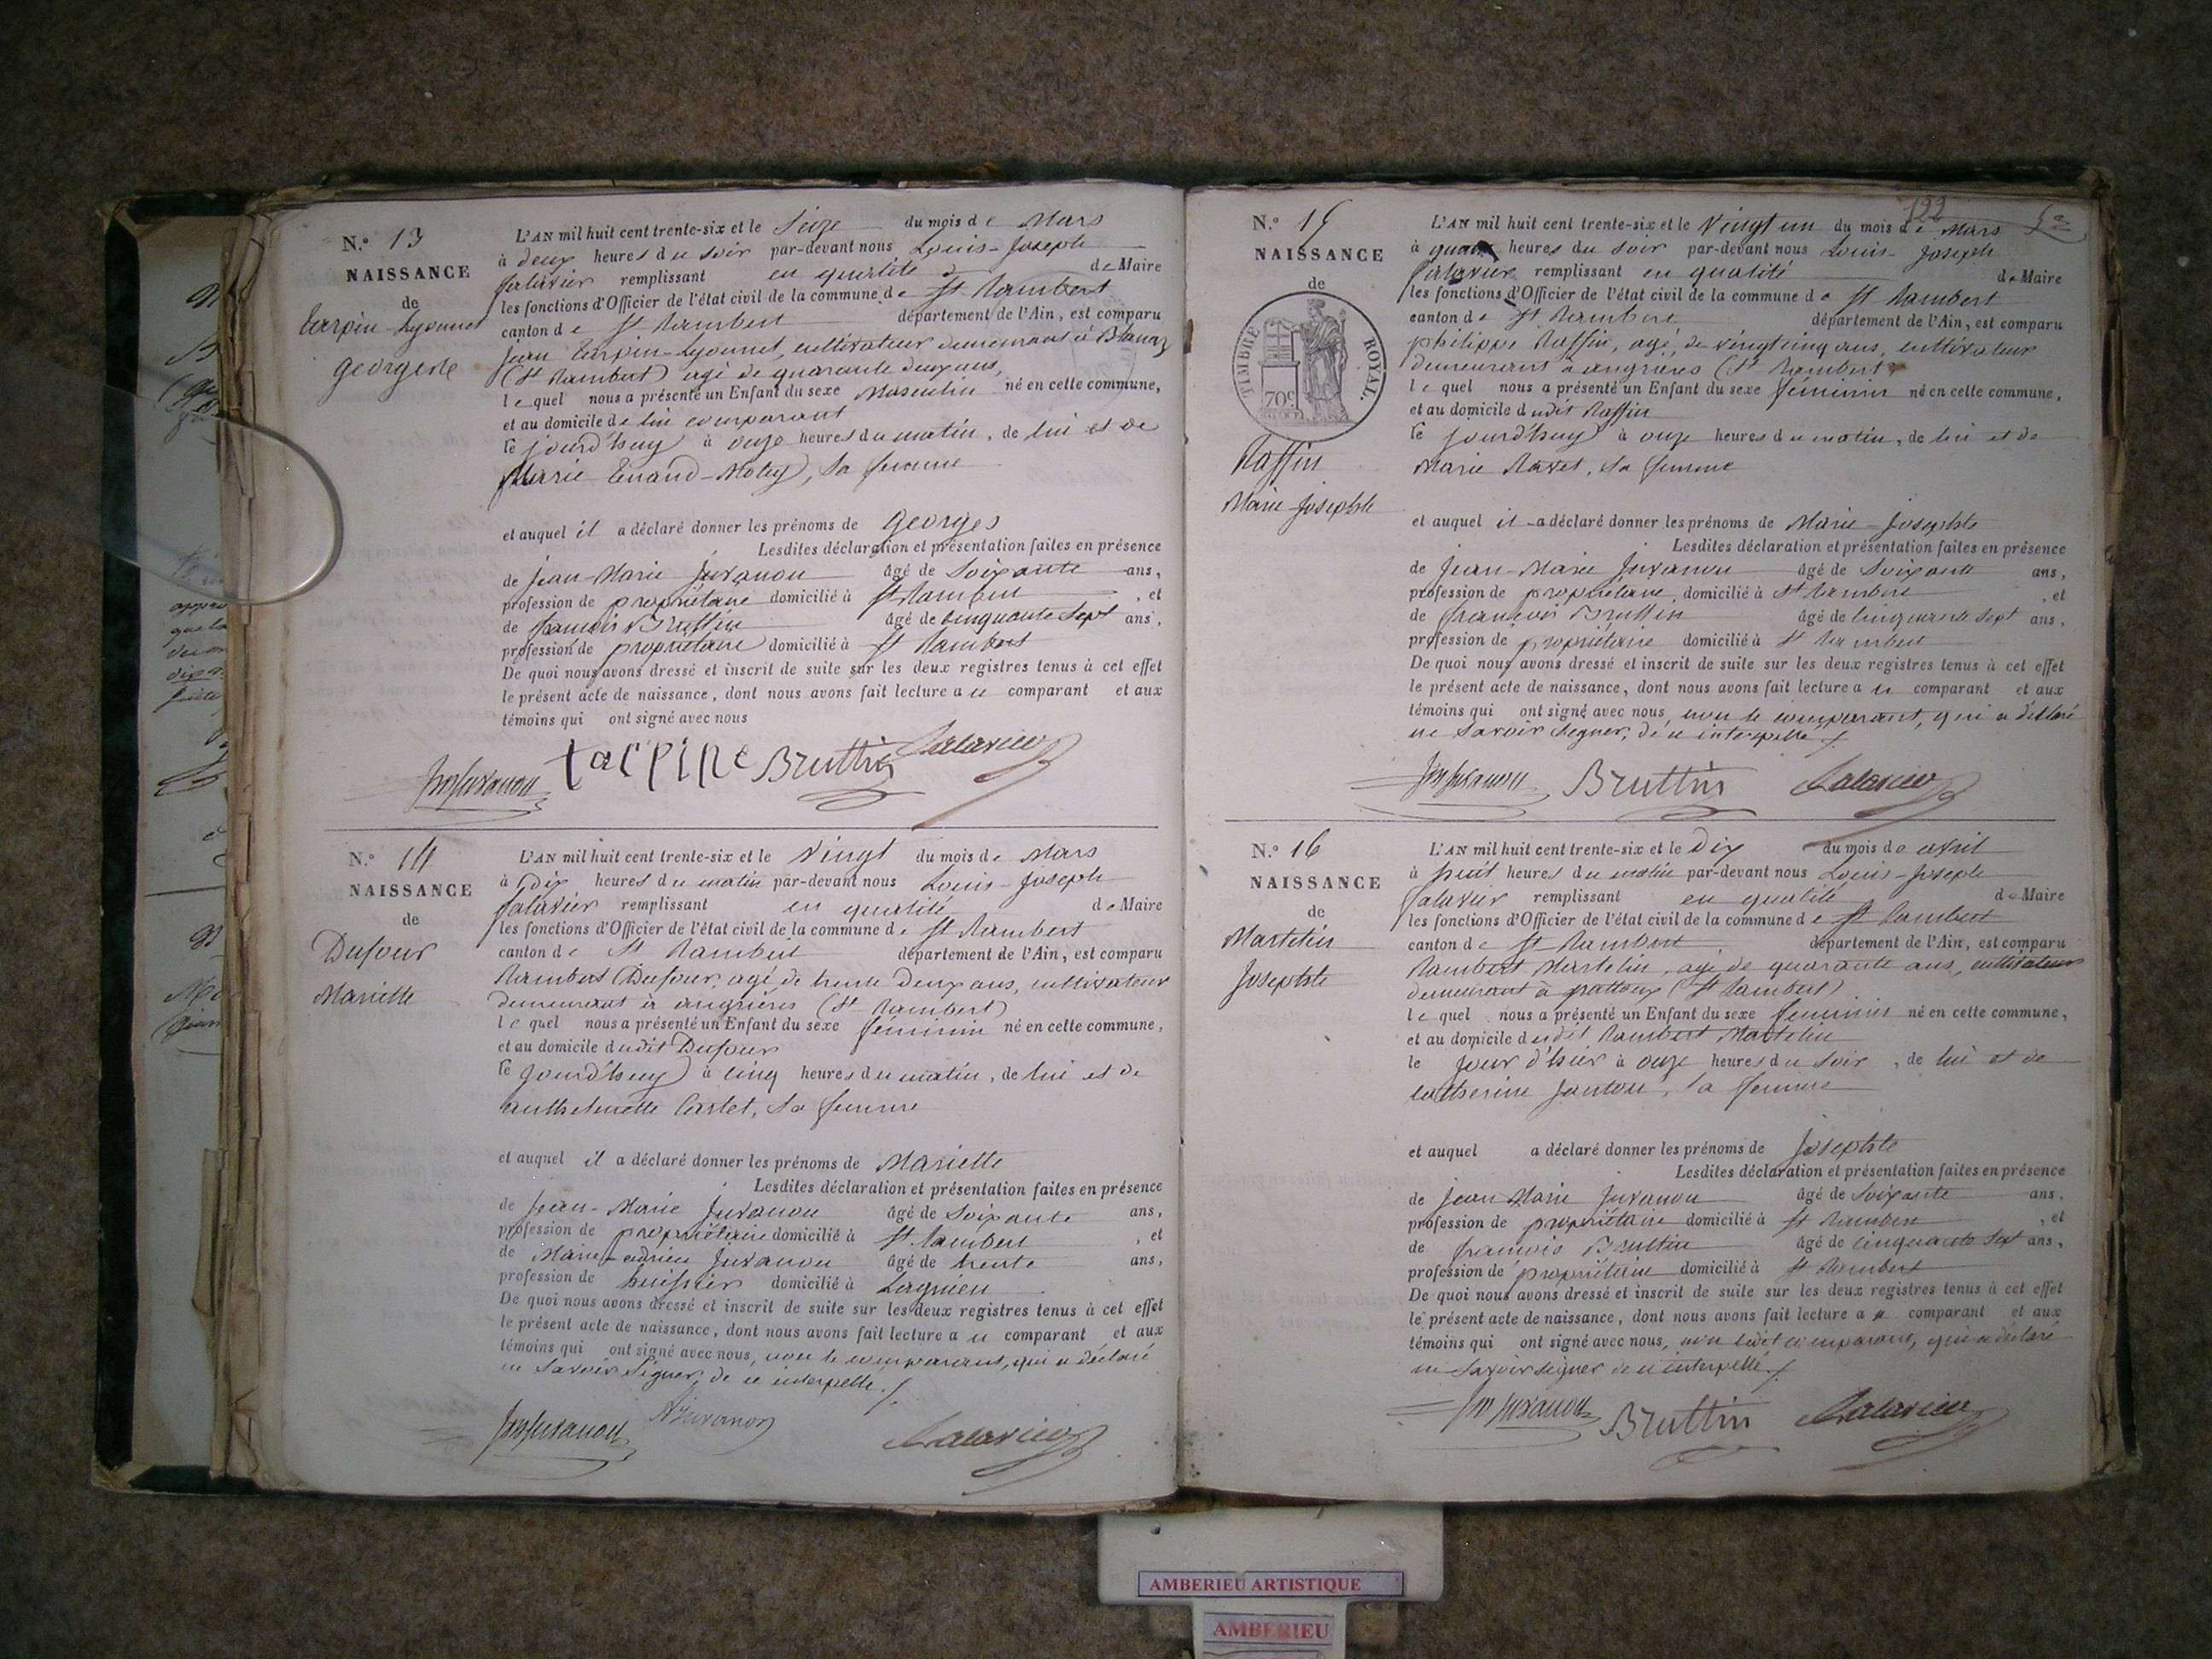 N.o 13
NAISSANCE
de
Tarpin-Lyonnet
georges
L'AN mil huit cent trente-six et le Seize du mois de Mars
à deux heures du soir par-devant nous Louis-Joseph
Salavier remplissant en qualité de Maire
les fonctions d'Officier de l'état civil de la commune de St Rambert
canton de St Rambert département de l'Ain, est comparu
jean Tarpin-Lyonnet, cultivateur demeurant à Blanaz
(St Rambert) agé de quarante deux ans,
lequel nous a présenté un Enfant du sexe Masculin né en cette commune,
et au domicile de lui comparant
le jourd'huy à onze heures du matin, de lui et de
Marie sa femme
et auquel il a déclaré donner les prénoms de georges
Lesdites déclaration et présentation faites en présence
de Jean-Marie Juvanon âgé de Soixante ans,
profession de propriétaire domicilié à St Rambert, et
de francois Bruttin âgé de cinquante sept ans,
profession de propriétaire domicilié à St Rambert
De quoi nous avons dressé et inscrit de suite sur les deux registres tenus à cet effet
le présent acte de naissance, dont nous avons fait lecture au comparant et aux
témoins qui ont signé avec nous
Jm Juvanon tarpine Bruttin Salavier
N.o 14
NAISSANCE
de
Dufour
Mariette
L'AN mil huit cent trente-six et le Vingt du mois de Mars
à Dix heures du matin par-devant nous Louis-Joseph
Salavier remplissant en qualité de Maire
les fonctions d'Officier de l'état civil de la commune de St Rambert
canton de St Rambert département de l'Ain, est comparu
Rambert Dufour, agé de trente Deux ans, cultivateur
demeurant à angrières (St Rambert)
lequel nous a présenté un Enfant du sexe féminin né en cette commune,
et au domicile dudit Dufour
le jourd'huy à cinq heures du matin, de lui et de
anthelmette Castet, sa femme
et auquel il a déclaré donner les prénoms de Mariette
Lesdites déclaration et présentation faites en présence
de Jean-Marie Juvanon âgé de Soixante ans,
profession de propriétaire domicilié à St Rambert, et
de Marie-adrien Juvanon âgé de trente ans,
profession de huissier domicilié à Lagnieu
De quoi nous avons dressé et inscrit de suite sur les deux registres tenus à cet effet
le présent acte de naissance, dont nous avons fait lecture au comparant et aux
témoins qui ont signé avec nous, non le comparant, qui a déclaré
ne Savoir Signer, de ce interpellé ./.
Jm Juvanon A Juvanon Salavier
122
N.o 15
NAISSANCE
de
TIMBRE ROYAL
70c
Raffin
Marie-Josephte
L'AN mil huit cent trente-six et le Vingt un du mois de Mars
à heures du soir par-devant nous Louis-Joseph
Salavier remplissant en qualité de Maire
les fonctions d'Officier de l'état civil de la commune de St Rambert
canton de St Rambert département de l'Ain, est comparu
philippe Raffin, agé de vingt cinq ans, cultivateur
demeurant à angrières (St Rambert)
lequel nous a présenté un Enfant du sexe féminin né en cette commune,
et au domicile dudit Raffin
le jourd'huy à onze heures du matin, de lui et de
Marie Ravet, sa femme
et auquel il a déclaré donner les prénoms de Marie-Josephte
Lesdites déclaration et présentation faites en présence
de Jean-Marie Juvanon âgé de Soixante ans,
profession de propriétaire domicilié à St Rambert, et
de francois Bruttin âgé de cinquante sept ans,
profession de propriétaire domicilié à St Rambert
De quoi nous avons dressé et inscrit de suite sur les deux registres tenus à cet effet
le présent acte de naissance, dont nous avons fait lecture au comparant et aux
témoins qui ont signé avec nous, non le comparant, qui a déclaré
ne Savoir signer, de ce interpellé ./.
Jm Juvanon Bruttin Salavier
N.o 16
NAISSANCE
de
Martelin
Josephte
L'AN mil huit cent trente-six et le Dix du mois de avril
à huit heures du matin par-devant nous Louis-Joseph
Salavier remplissant en qualité de Maire
les fonctions d'Officier de l'état civil de la commune de St Rambert
canton de St Rambert département de l'Ain, est comparu
Rambert Martelin, agé de quarante ans, cultivateur
demeurant à (St Rambert)
lequel nous a présenté un Enfant du sexe féminin né en cette commune,
et au domicile dudit Rambert Martelin
le jour d'hier à onze heures du soir, de lui et de
catherine Janton, sa femme
et auquel a déclaré donner les prénoms de Josephte
Lesdites déclaration et présentation faites en présence
de Jean Marie Juvanon âgé de Soixante ans,
profession de propriétaire domicilié à St Rambert, et
de francois Bruttin âgé de cinquante sept ans,
profession de propriétaire domicilié à St Rambert
De quoi nous avons dressé et inscrit de suite sur les deux registres tenus à cet effet
le présent acte de naissance, dont nous avons fait lecture au comparant et aux
témoins qui ont signé avec nous, non ledit comparant, qui a déclaré
ne Savoir signer de ce interpellé ./.
Jm Juvanon Bruttin Salavier
AMBERIEU ARTISTIQUE
AMBERIEU